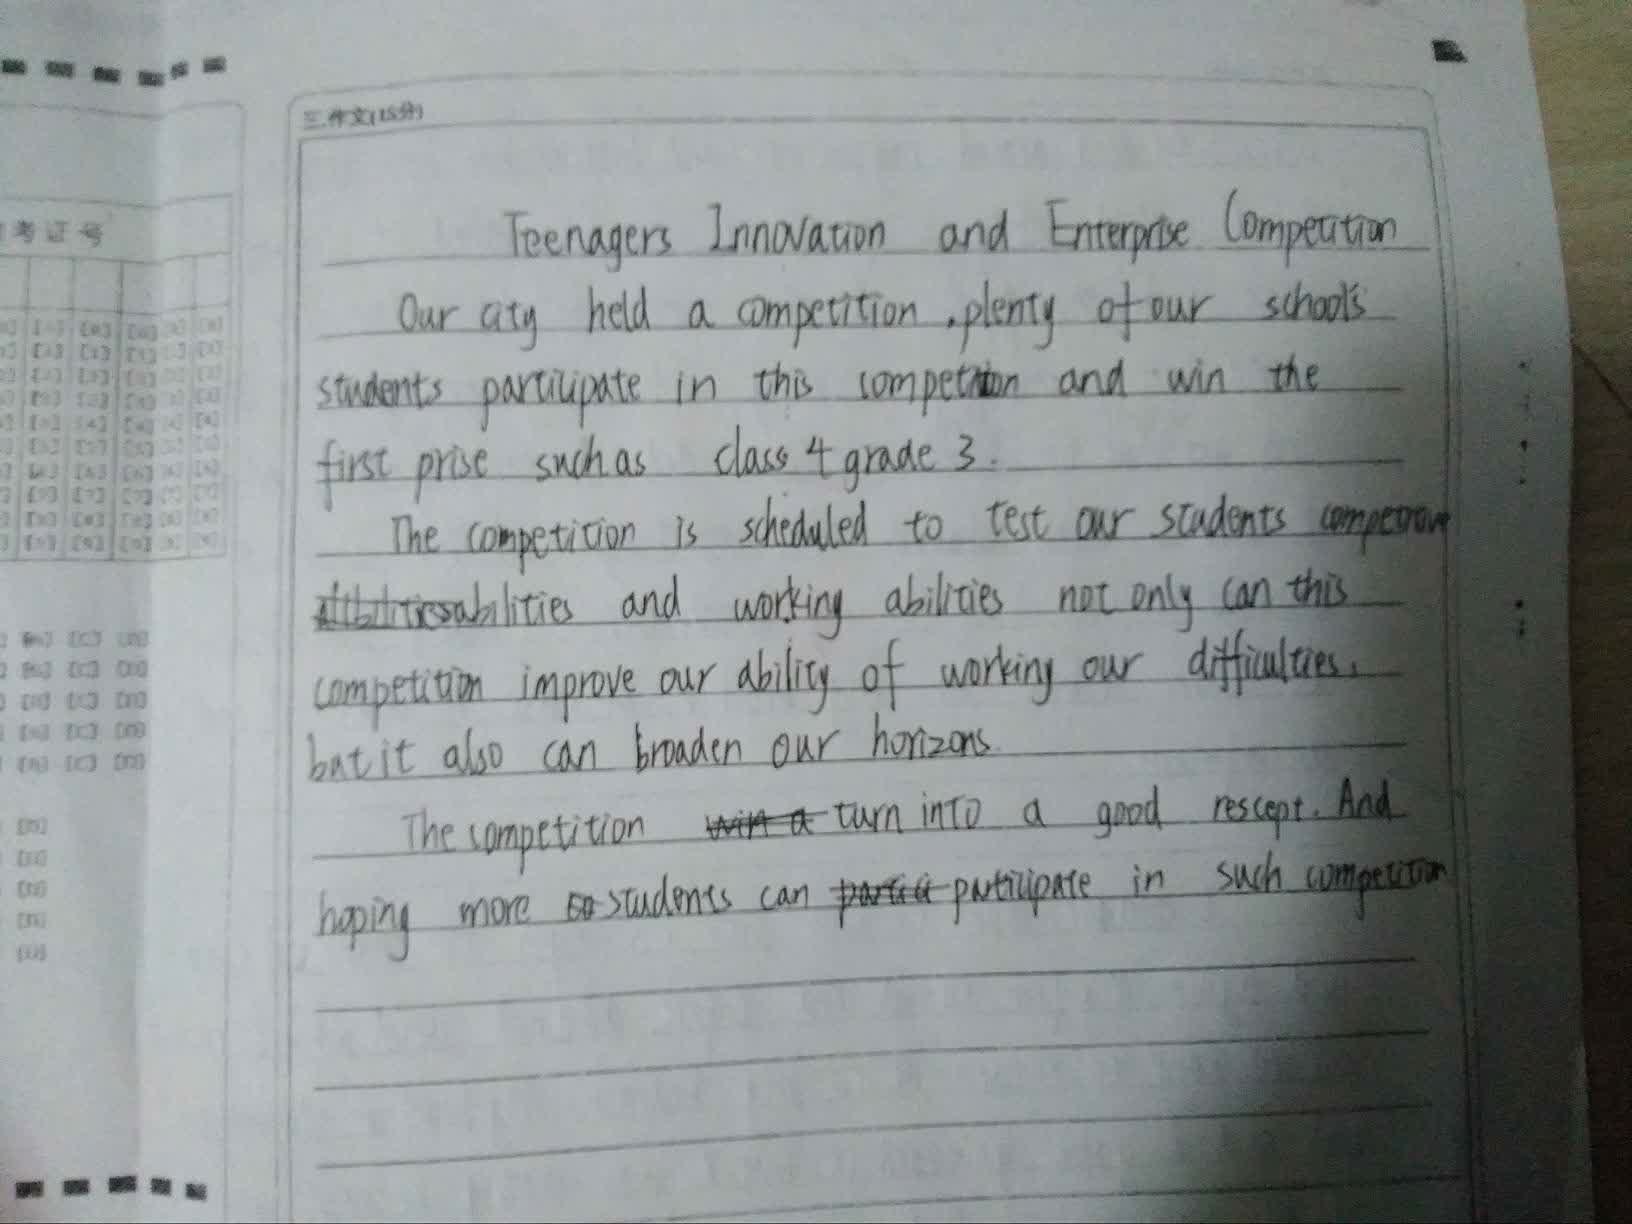 三.作文(15分)
考证号
Teenagers Innovation and Enterprise Competition
Our city held a competition, plenty of our school's
students participate in this competition and win the
first prise such as class 4 grade 3.
The competition is scheduled to test our students
abilities and working abilities not only can this
competition improve our ability of working our difficulties,
but it also can broaden our horizons.
The competition win a turn into a good rescept. And
hoping more students can participate in such competition